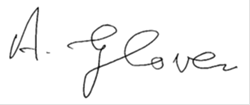 A. Glover